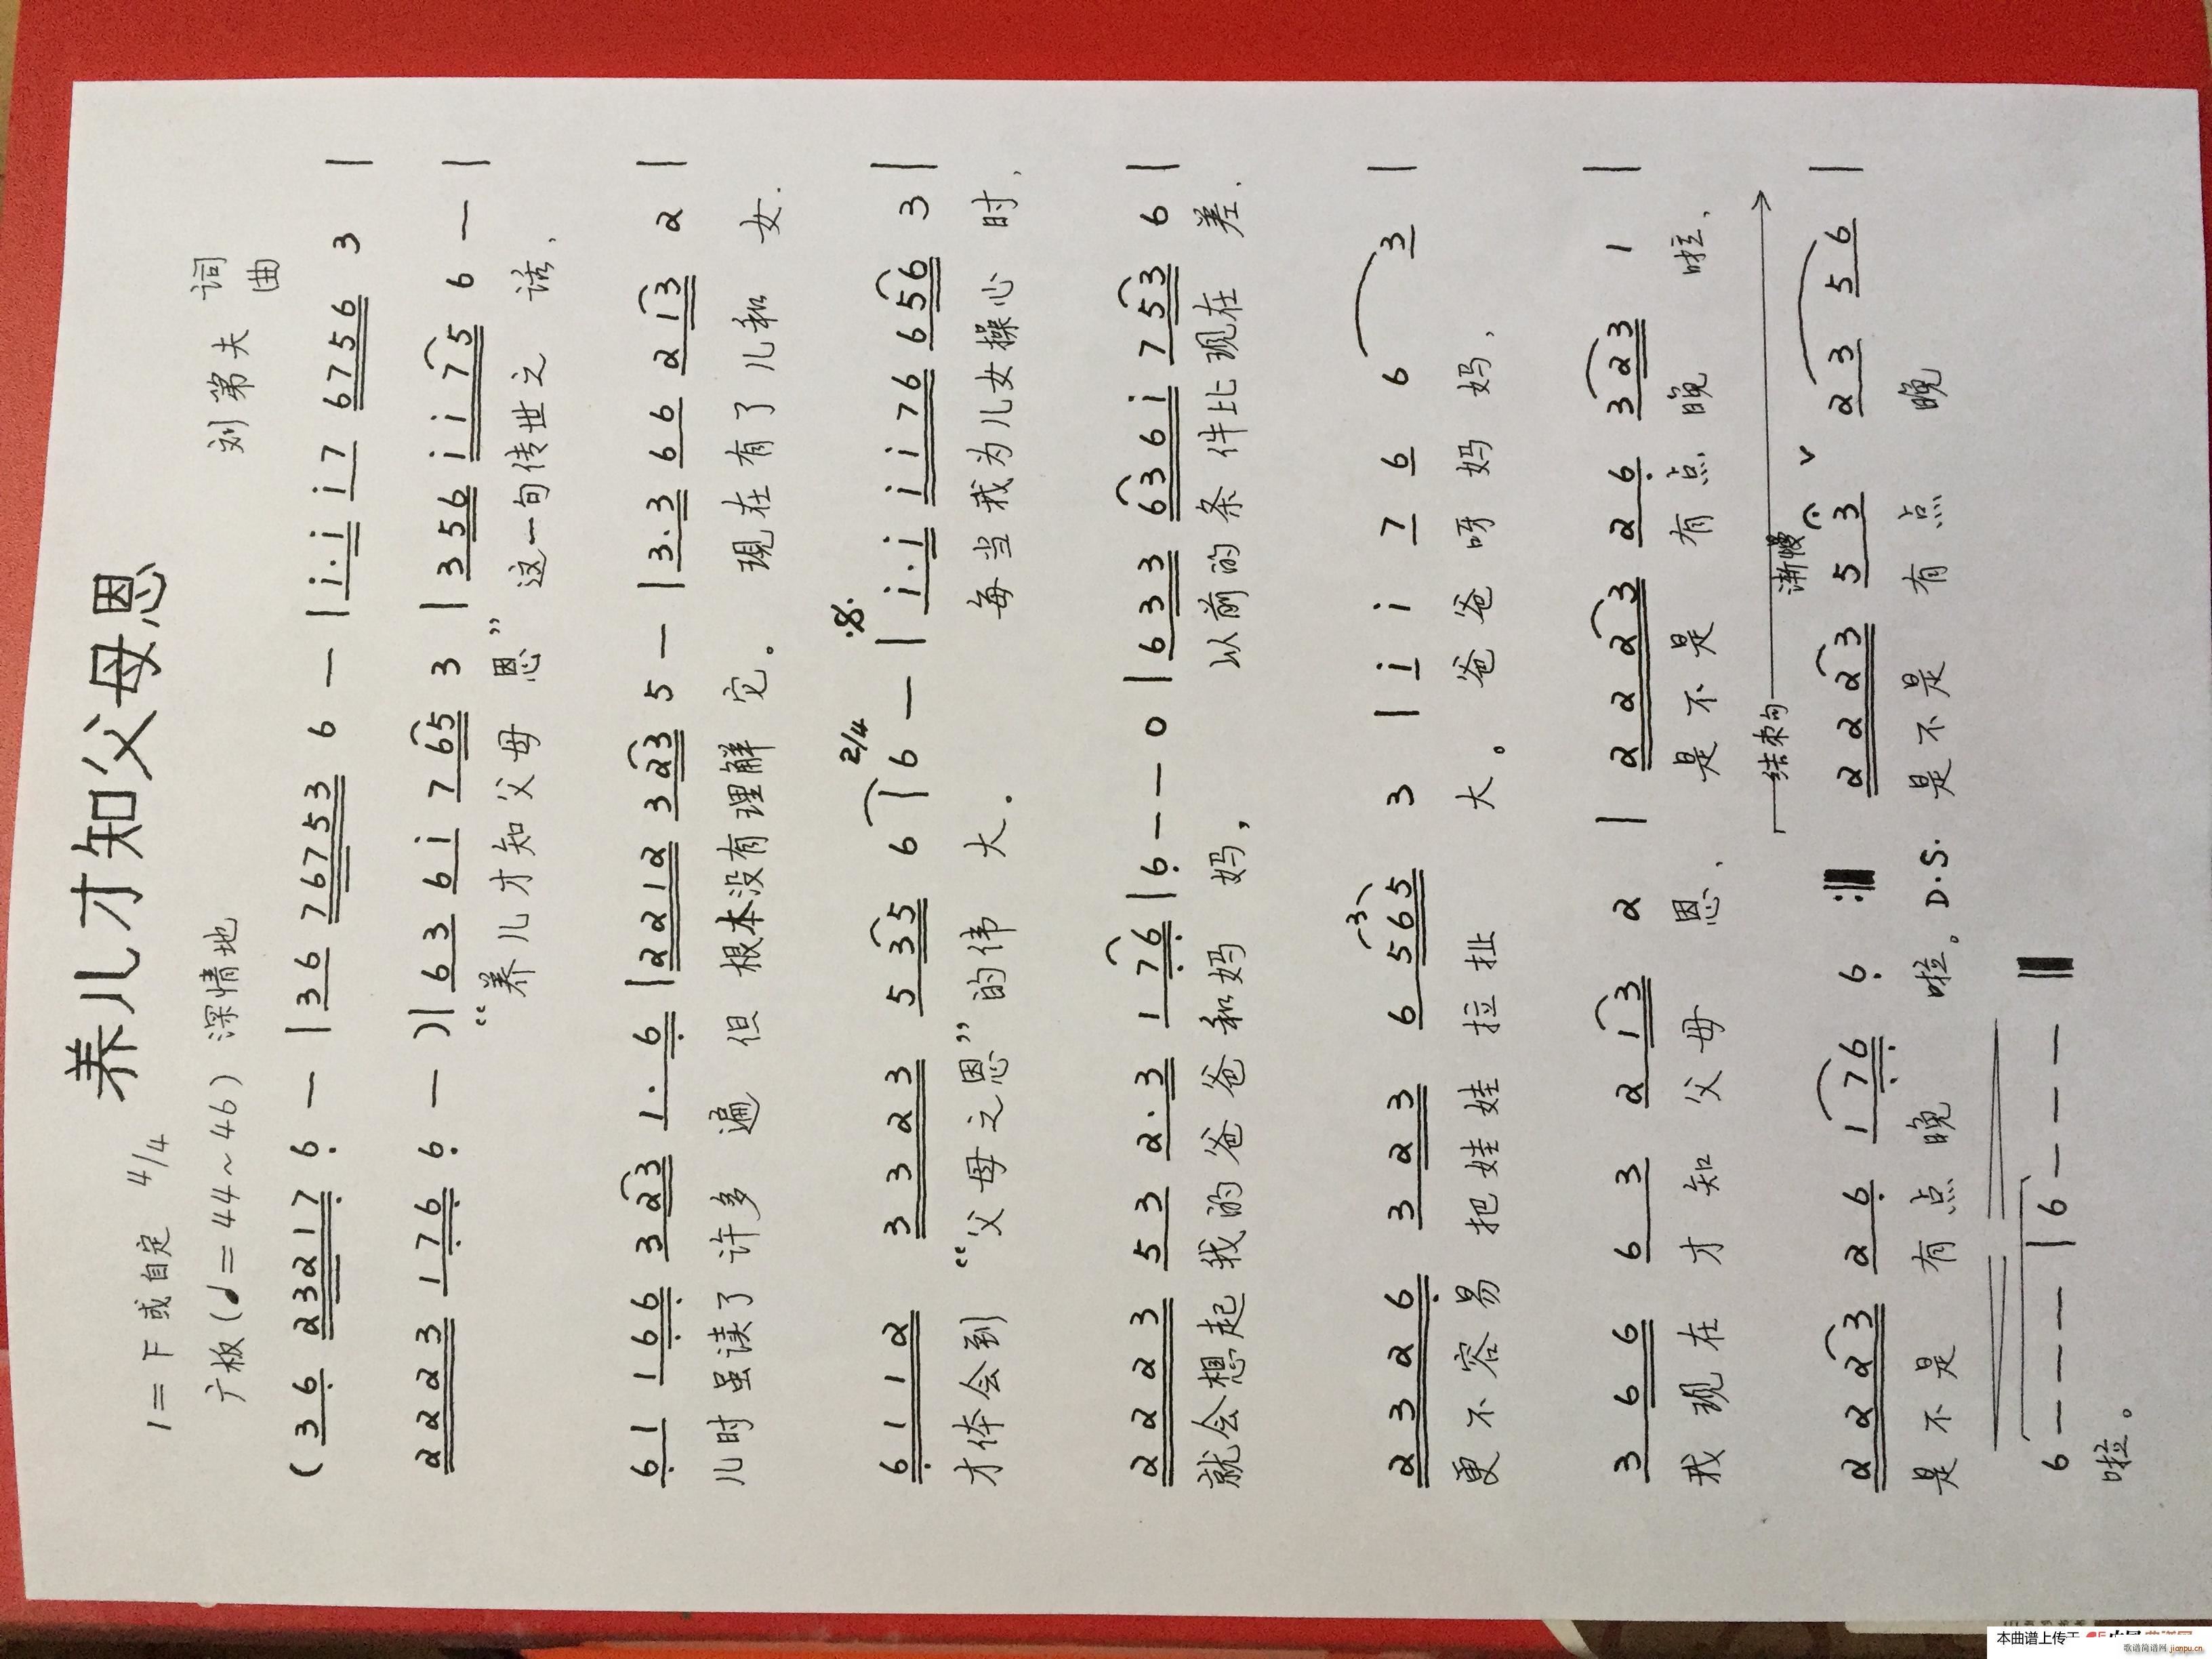 养儿才知父母恩
1=F或自定 4/4
刘第夫 词
曲
广板(♩=44~46) 深情地
(3 6 2 3 2 1 7 6 — | 3 6 7 6 7 5 3 6 — | i·i i 7 6 7 5 6 3 |
2 2 2 3 1 7 6 6 — )| 6 3 6 i 7 6 5 3 | 3 5 6 i i 7 5 6 — |
“养儿才知父母恩” 这一句传世之话,
6 1 1 6 6 3 2 3 1· 6 | 2 2 1 2 3 2 3 5 — | 3·3 6 6 2 1 3 2 |
儿时虽读了许多遍 但根本没有理解它。 现在有了儿和女.
2/4
6 1 1 2 3 3 2 3 5 3 5 6 | 6 — | i·i i i 7 6 6 5 6 3 |
才体会到 “父母之恩”的伟大. 每当我为儿女操心时,
2 2 2 3 5 3 2·3 1 7 6 | 6 — — 0 | 6 3 3 6 3 6 i 7 5 3 6 |
就会想起我的爸爸和妈妈, 以前的条件比现在差.
2 3 2 6 3 2 3 6 5 6 5 3 | i i 7 6 6 3 |
3
更不容易把娃娃拉扯大。 爸爸呀妈妈,
3 6 6 6 3 2 1 3 2 | 2 2 2 3 2 6 3 2 3 1 |
我现在才知父母恩, 是不是有点晚啦,
结束句
渐慢
2 2 2 3 2 6 1 7 6 6 :‖ 2 2 2 3 5 3 ∨ 2 3 5 6 |
是不是有点晚啦。D.S. 是不是有点晚
6 — — — | 6 — — — ‖
啦。
本曲谱上传于
歌谱简谱网 jianpu.cn